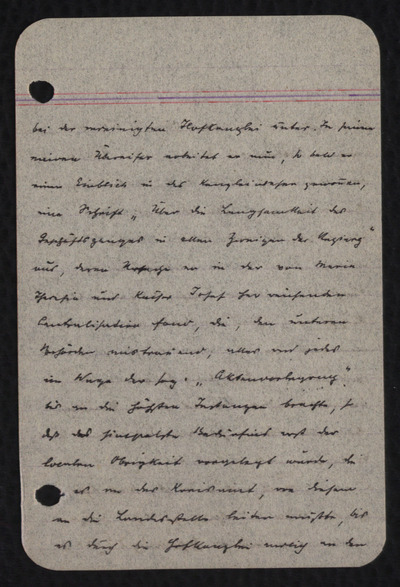 bei der vereinigten Hofkanzlei unter. In seinem
naiven Übereifer arbeitet er nun, so bald er
einen Einblick in das Kanzleiwesen gewonnen,
eine Schrift „Über die Langsamkeit des
Geschäftsganges in allen Zweigen der Regierg"
aus, deren Ursache er in der von Maria
Theresia und Kaiser Josef her reichenden
Centralisation fand, die, den unteren
Behörden misstrauend, alles und jedes
im Wege der sog. „Aktenvorlegung"
bis an die höchsten Instanzen brachte, so
daß das simpelste Bedürfnis erst der
localen Obrigkeit vorgelegt wurde, die
es an das Kreisamt, von diesem
an die Landesstelle leiten mußte, bis
es durch die Hofkanzlei endlich an den